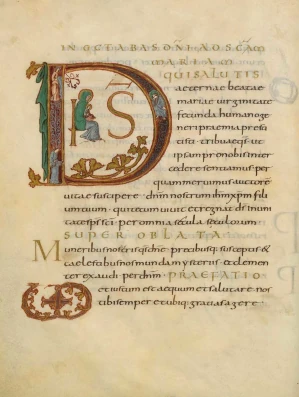 IN OCTABAS DNI AD SCAM
MARIAM
DS QUI SALUTIS
aeternae beatae
mariae uirginitate
fecunda humano ge
neri praemia presti
tisti tribuaeqs ut
ipsam pro nobis inter
cedere sentiamus per
quam meruimus auctore
uitae suscipere dnm nostrum ihm xpm fili
um tuum qui tecum uiuit et regnat ds in uni
tate sps sci per omnia secula seculorum
SUPER OBLATA
Muneribus nostris dne precibusq susceptis &
caelestibus nos munda mysteriis et clemen
ter exaudi per dnm PRAEFATIO
et iustum est aequum et salutare nos
tibi semper et ubiq gratias agere